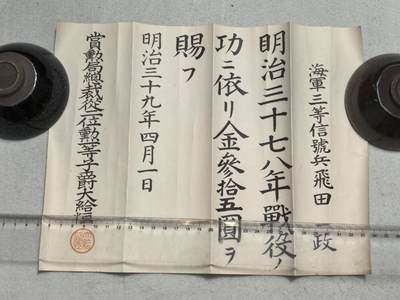 海軍三等信號兵飛田一政
明治三十七八年戰役ノ
功ニ依リ金參拾五圓ヲ
賜フ
明治三十九年四月一日
賞勲局總裁從二位勲一等子爵大給恒